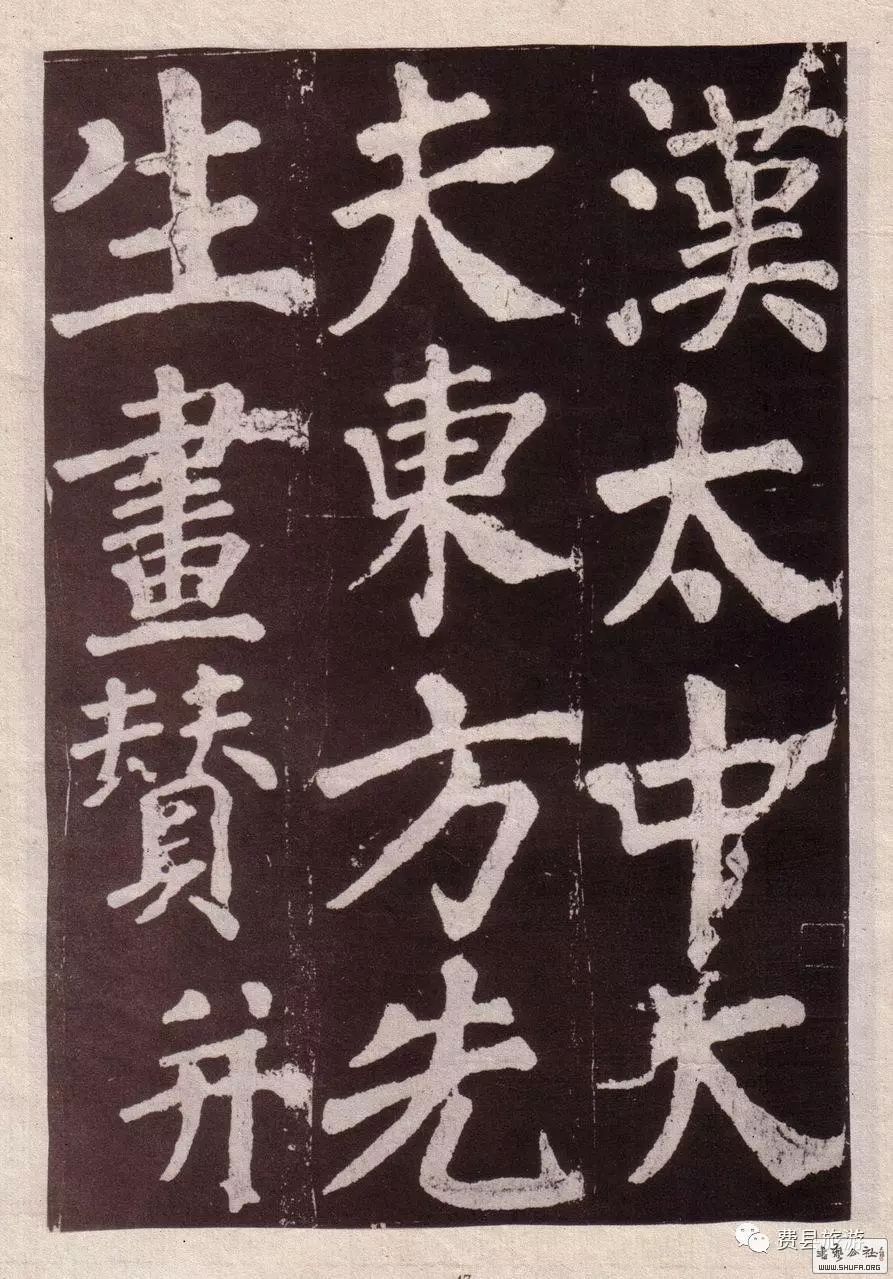 漢太中大
夫東方先
生畫賛并
费县旅游
书艺公社
www.SHUFA.ORG